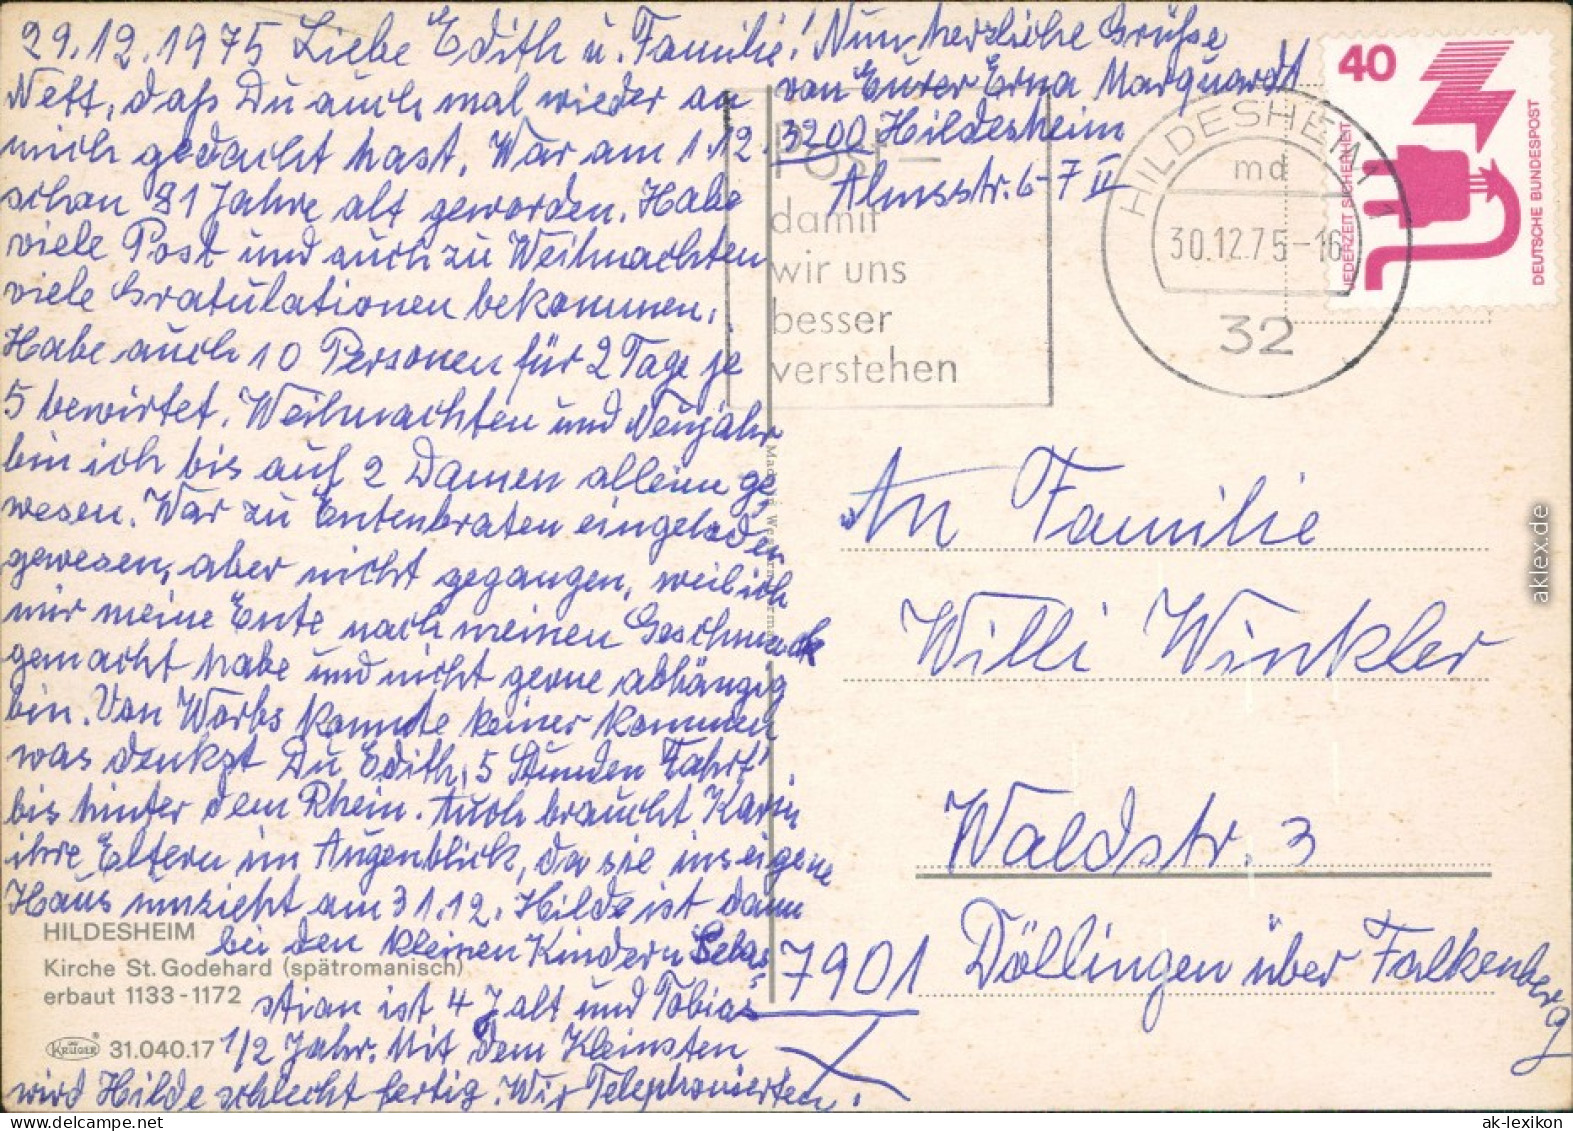 29.12.1975 Liebe Edith u. Familie!
Nett, daß Du auch mal wieder an
mich gedacht hast. War am 1.12.
schon 81 Jahre alt geworden. Habe
viele Post und auch zu Weihnachten
viele Gratulationen bekommen.
Habe auch 10 Personen für 2 Tage je
5 bewirtet. Weihnachten und Neujahr
bin ich bis auf 2 Damen allein ge
wesen. War zu Entenbraten eingeladen
gewesen, aber nicht gegangen, weil ich
mir meine Ente nach meinen Geschmack
gemacht habe und nicht gerne abhängig
bin. Von Worbs konnte keiner kommen
was denkst Du Edith, 5 Stunden Fahrt
bis hinter dem Rhein. Auch braucht Karin
ihre Eltern im Augenblick, da sie ins eigene
Haus umzieht am 31.12. Hilde ist dann
bei den kleinen Kindern Sebas-
stian ist 4 J alt und Tobias
1/2 Jahr. Mit dem Kleinsten
wird Hilde schlecht fertig. Wir Telephonierten.
Nun herzliche Grüße
von Eurer Erna Marquardt
3200 Hildesheim
Almsstr. 6-7 II
HILDESHEIM
Kirche St. Godehard (spätromanisch)
erbaut 1133-1172
KRÜGER 31.040.17
Post-
damit
wir uns
besser
verstehen
HILDESHEIM 1
md
30.12.75-16
32
40
JEDERZEIT SICHERHEIT
DEUTSCHE BUNDESPOST
An Familie
Willi Winkler
Waldstr. 3
7901 Döllingen über Falkenberg
aklex.de
ak-lexikon